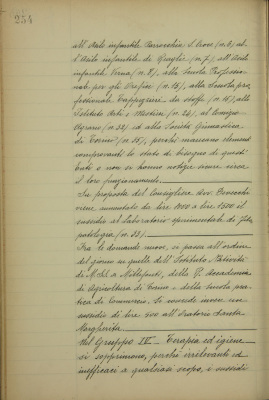 254
all'Asilo infantile Parrocchia S. Croce (n. 6) al-
l'Asilo infantile di Graglia (n. 7), all'Asilo
infantile Verna (n. 8), alla Scuola Professio-
nale per gli Orafi (n. 15), alla Scuola pro-
fessionale Tappezzieri da stoffe (n. 16), allo
Istituto Arti e Mestieri (n. 24), al Comizio
Agrario (n. 32) ed alla Società Ginnastica
di Torino (n. 35), perchè mancano elementi
comprovanti lo stato di bisogno di questi
Enti e non si hanno notizie sicure circa
il loro funzionamento.
Su proposta del Consigliere Avv.
viene aumentato da lire 1000 a lire 1500 il
sussidio al Laboratorio sperimentale di Fito-
patologia (n. 33).
Fra le domande nuove, si passa all'ordine
del giorno su quelle dell'Istituto Natività
di M. SS. a Millefonti, della R. Accademia
di Agricoltura di Torino e della Scuola pra-
tica di Commercio. Si concede invece un
sussidio di lire 500 all'Oratorio Santa
Margherita.
Nel Gruppo IV - Terapia ed igiene
si sopprimono, perchè irrilevanti ed
inefficaci a qualsiasi scopo, i sussidi